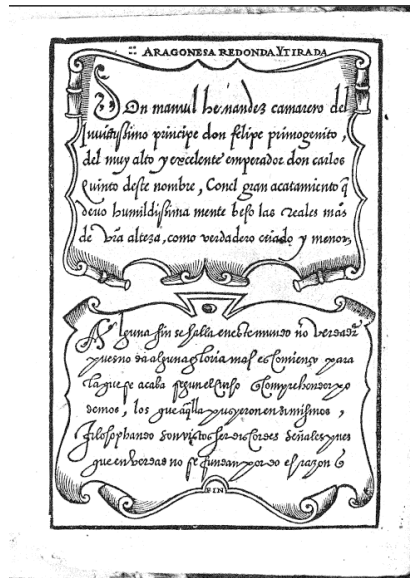 :: ARAGONESA REDONDA. Y TIRADA
Don manuel hernandez camarero del
Invictissimo principe don felipe primogenito,
del muy alto y excelente emperador don carlos
Quinto deste nombre, Conel gran acatamiento q̃
devo humildissima mente beso las reales mãs
de vr̃a alteza, como verdadero criado y menor
Alguna fin se halla eneste mundo no verdadr̃
pues no da alguna gloria mas es comienço para
la que se acaba segun el curso Comprehender po
demos, los que aq̃lla pusyeron en si mismos,
filosophando son vistos ser discordes señales pues
que en verdad no se fundan por do es razon
FIN